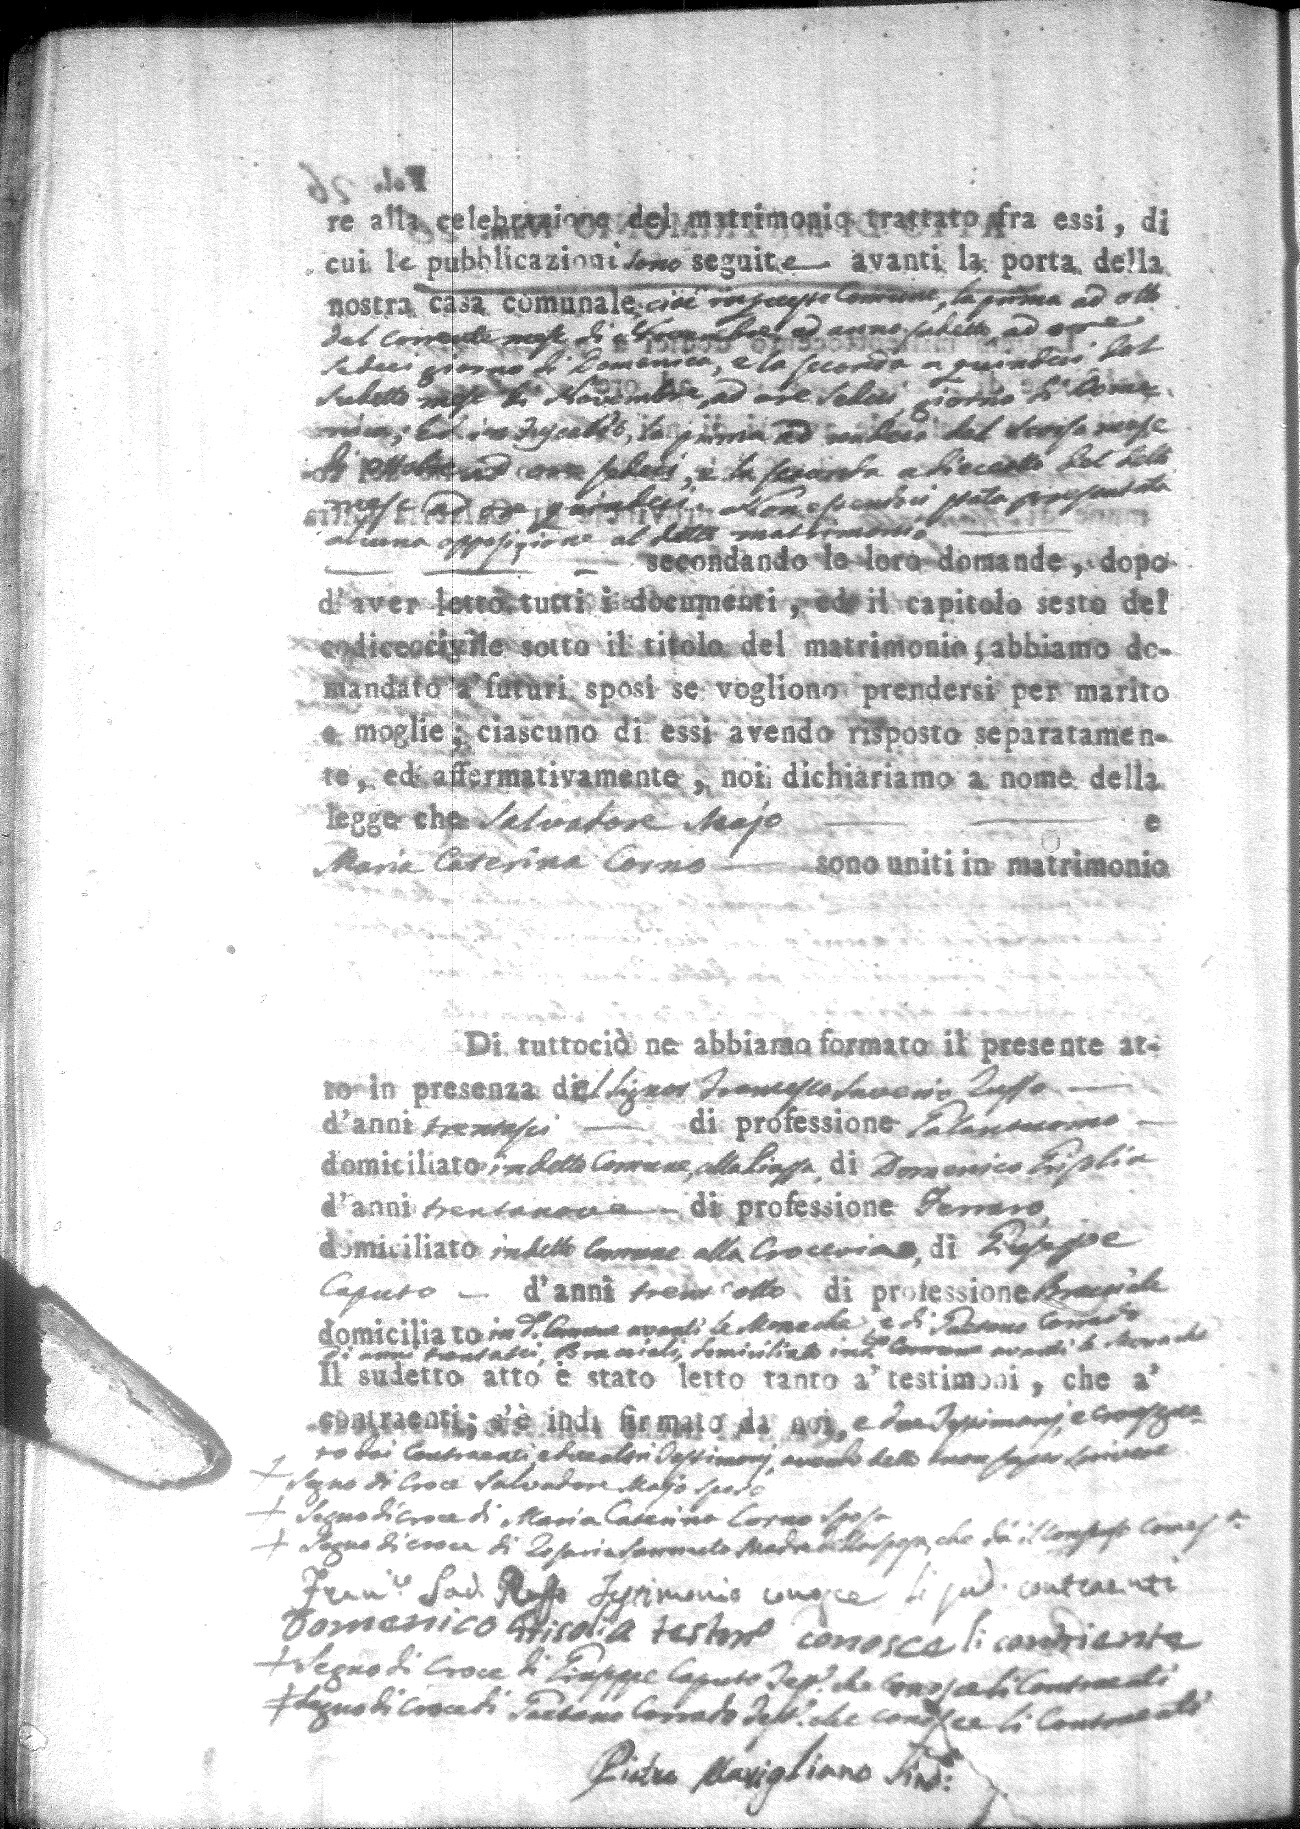 re alla celebrazione del matrimonio trattato fra essi, di
cui le pubblicazioni sono seguite avanti la porta della
nostra casa comunale, cioè in Comune, la prima ad otto
del corrente mese di Novembre ad anno sudetto ad ore
sedeci giorno di Domenica, e la seconda a quindeci del
sudetto mese di Novembre, ad ore sedeci giorno di Dome
nica; Ed in la prima ad undeci del scorso mese
di ottobre ad ore sedeci, e la seconda a dieciotto del detto
mese ad ore stata presentata
alcuna opposizione al detto matrimonio
secondando le loro domande, dopo
d'aver letto tutti i documenti, ed il capitolo sesto del
codice civile sotto il titolo del matrimonio, abbiamo do-
mandato a' futuri sposi se vogliono prendersi per marito
e moglie; ciascuno di essi avendo risposto separatamen-
te, ed affermativamente, noi dichiariamo a nome della
legge che Salvadore Majo e
Maria Caterina Corno sono uniti in matrimonio
Di tuttociò ne abbiamo formato il presente at-
to in presenza del Signor Francesco Saverio
d'anni trentasei di professione Galantuomo
domiciliato in detto Comune, alla Piazza, di Domenico Grisolia
d'anni trentanove di professione Ferraro,
domiciliato in detto Comune alla Crocevia, di Giuseppe
Caputo d'anni trent'otto di professione Bracciale
domiciliato in d.º Comune avanti le Monache, e di Gaetano Corrado
di anni trentasei, Bracciali, domiciliato in d.º Comune avanti le Monache
Il sudetto atto è stato letto tanto a' testimoni, che a'
contraenti; s'è indi firmato da noi, e due Testimonj, e
ro dai Contraenti, e due altri Testimonj, avendo detto non saper scrivere
+ Segno di Croce Salvadore Majo sposo
+ Segno di croce di Maria Caterina Corno sposa
+ Segno di croce di Madre della sposa, che dà il consenso
Fran.co Sav. Testimonio conosce li sud. contraenti
Domenico Grisolia testim.o conosce li contriente
+ Segno di Croce di Giuseppe Caputo Tes.º che conosce li Contraenti
+ Segno di Croce di Gaetano Corrado Tes.º che conosce li Contraenti
Pietro Marigliano Sind.: